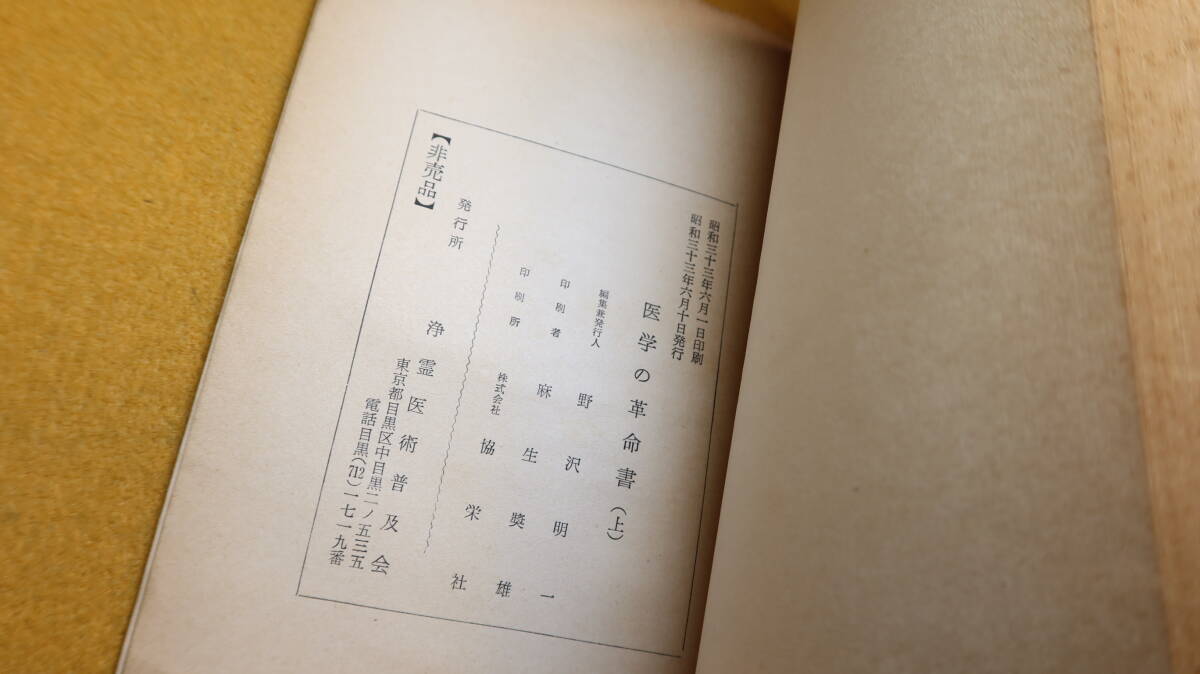 昭和三十三年六月一日印刷
昭和三十三年六月十日発行
医学の革命書(上)
編集兼発行人 野沢明一
印刷者 麻生奬雄
印刷所 株式会社 協栄社
発行所 浄霊医術普及会
東京都目黒区中目黒二ノ五三五
電話目黒(712)一七一九番
【非売品】